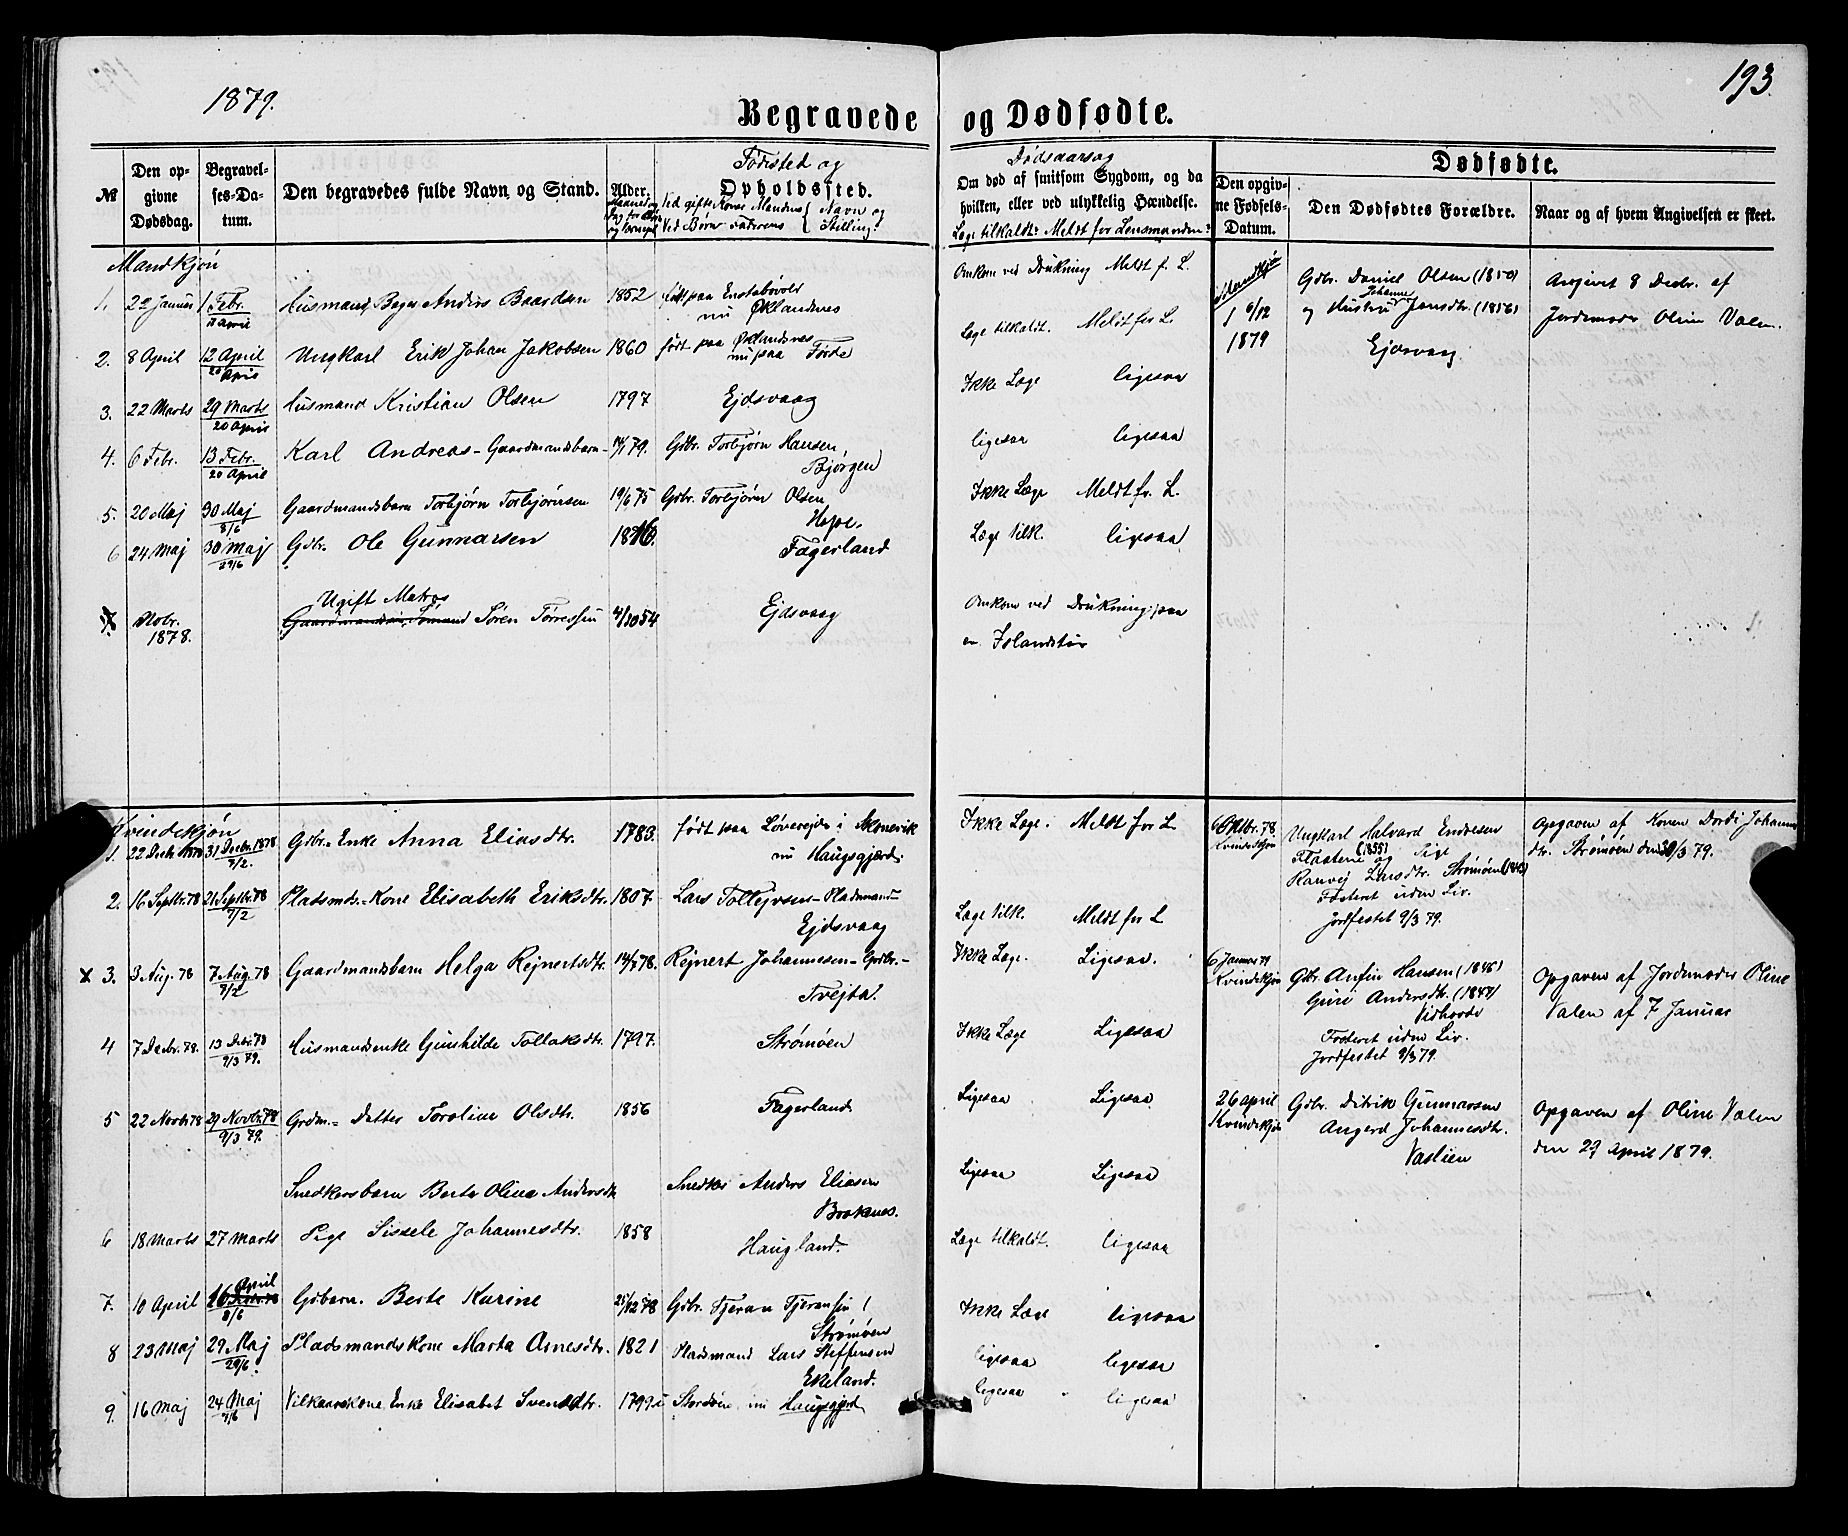 1879.
193.
Begravede og Dødfødte.
№
Den opgivne Dødsdag.
Begravelses-Datum.
Den begravedes fulde Navn og Stand.
Alder.
Fødested og
Opholdssted.
Ved gifte Koner Mandens { Navn og
Ved Børn Faderens { Stilling.
Dødsaarsag
Om død af smitsom Sygdom, og da
hvilken, eller ved ulykkelig Hændelse.
Læge tilkaldt? Meldt for Lensmanden?
Dødfødte.
Den opgivne Fødsels-Datum.
Den Dødfødtes Forældre.
Naar og af hvem Angivelsen er skeet.
Mandkjøn
1. 22 Januar 1 Febr. Husmand Anders Baardsen 1852 født paa
nu Øklandnes
Omkom ved Drukning Meldt f. L.
2. 8 April 12 April 20 April Ungkarl Erik Johan Jakobsen 1860 født paa Øklandnes
nu paa Førde
Læge tilkaldt. Meldt for L.
3. 22 Marts 29 Marts 20 April Husmand Kristian Olsen 1797 Ejdsvaag
Ikke Læge ligesaa
4. 6 Febr. 13 Febr. 20 April Karl Andreas - Gaardmandsbarn - 79. Gdbr. Torbjørn Hansen
Bjørgen
ligesaa ligesaa
5. 20 Maj 30 Maj 8/6 Gaardmandsbarn Torbjørn Torbjørnsen 19/6 75 Gdbr. Torbjørn Olsen
Hope.
Ikke Læge Meldt for L.
6 24 Maj 30 Maj 29/6 Gdbr. Ole Gunnarsen Fagerland
Læge tilk. ligesaa
7 Nobr. 1878. Ugift Matros
Søren Tørressen 4/10 54 Ejdsvaag
Omkom ved Drukning paa
en Islandstur
1 6/12
1879
Gdbr. Daniel Olsen (1850)
og Hustru Johanne Jonsdtr. (1856)
Ejdsvaag
Angivet 8 Decbr. af
Jordemoder Oline Valen.
Kvindekjøn
1. 22 Decbr. 1878 31 Decbr. 1878 9/2. Gdbr. Enke Anna Eliasdtr. 1783. født paa i Skonevik
nu Haugsgjærd.
Ikke Læge. Meldt for L.
2. 16 Septbr. 78 21 Septbr. 78 9/2 Pladsmds.-Kone Elisabeth Eriksdtr. 1807. Lars Tollejvsen - Pladsmand -
Ejdsvaag
Læge tilk. Meldt for L
x 3. 3 Aug. 78 7 Aug. 78 9/2 Gaardmandsbarn Helga Rejnertsdtr. 78. Rejnert Johannesen - Gdbr. -
Tvejta.
Ikke Læge. Ligesaa.
4 7 Decbr. 78. 13 Decbr. 78 9/3 79. Husmandsenke Gunhilde Tollaksdtr. 1797. Strømøen
Ikke Læge Ligesaa
5 22 Novbr. 78 29 Novbr. 78 9/3 79. Grdm.- Datter Toroline Olsdtr. 1856 Fagerland
Ligesaa Ligesaa
Snedkersbarn Berte Oline Andersdtr Snedker Anders Eliasen
Ligesaa Ligesaa
6 18 Marts 27 Marts Pige Sissele Johannesdtr. 1858 Haugland.
Læge tilkaldt. ligesaa
7. 10 April 16 April 8/6 Gdbarn. Berte Karine 25/12 78 Gdbr. Tjeran Tjeransen
Strømøen
Ikke Læge ligesaa
8 23 Maj 29 Maj 29/6. Pladsmandskone Marta Arnesdtr. 1821 Pladsmand Lars Steffensen
Ekeland.
ligesaa ligesaa
9. 16 Maj 24 Maj Vilkaarskone Enke Elisabet Svensdtr. 1799 Stordøen nu Haugsgjerd
ligesaa ligesaa
6 Oktbr. 78.
Kvindekjøn
Ungkarl Halvard Endresen
(1855) og Pige
Ranvej Larsdtr. Strømøen
Fosteret uden Liv.
Jordfestet 9/3 79.
Opgaven af Konen Dordi Johannesdtr. Strømøen den 30/3 79.
6 Januar 79
Kvindekjøn
Gdbr. Anfin Hansen (1846)
Guri Andersdtr. (1847)
Vidhovde
Fosteret uden Liv.
Jordfestet 9/3 79.
Opgaven af Jordemoder Oline
Valen af 7 Januar
26 april
Kvindekjøn
Gdbr. Ditrik Gunnarsen
Angerd Johannesdtr.
Vaslien
Opgaven af Oline Valen
den 29 April 1879.